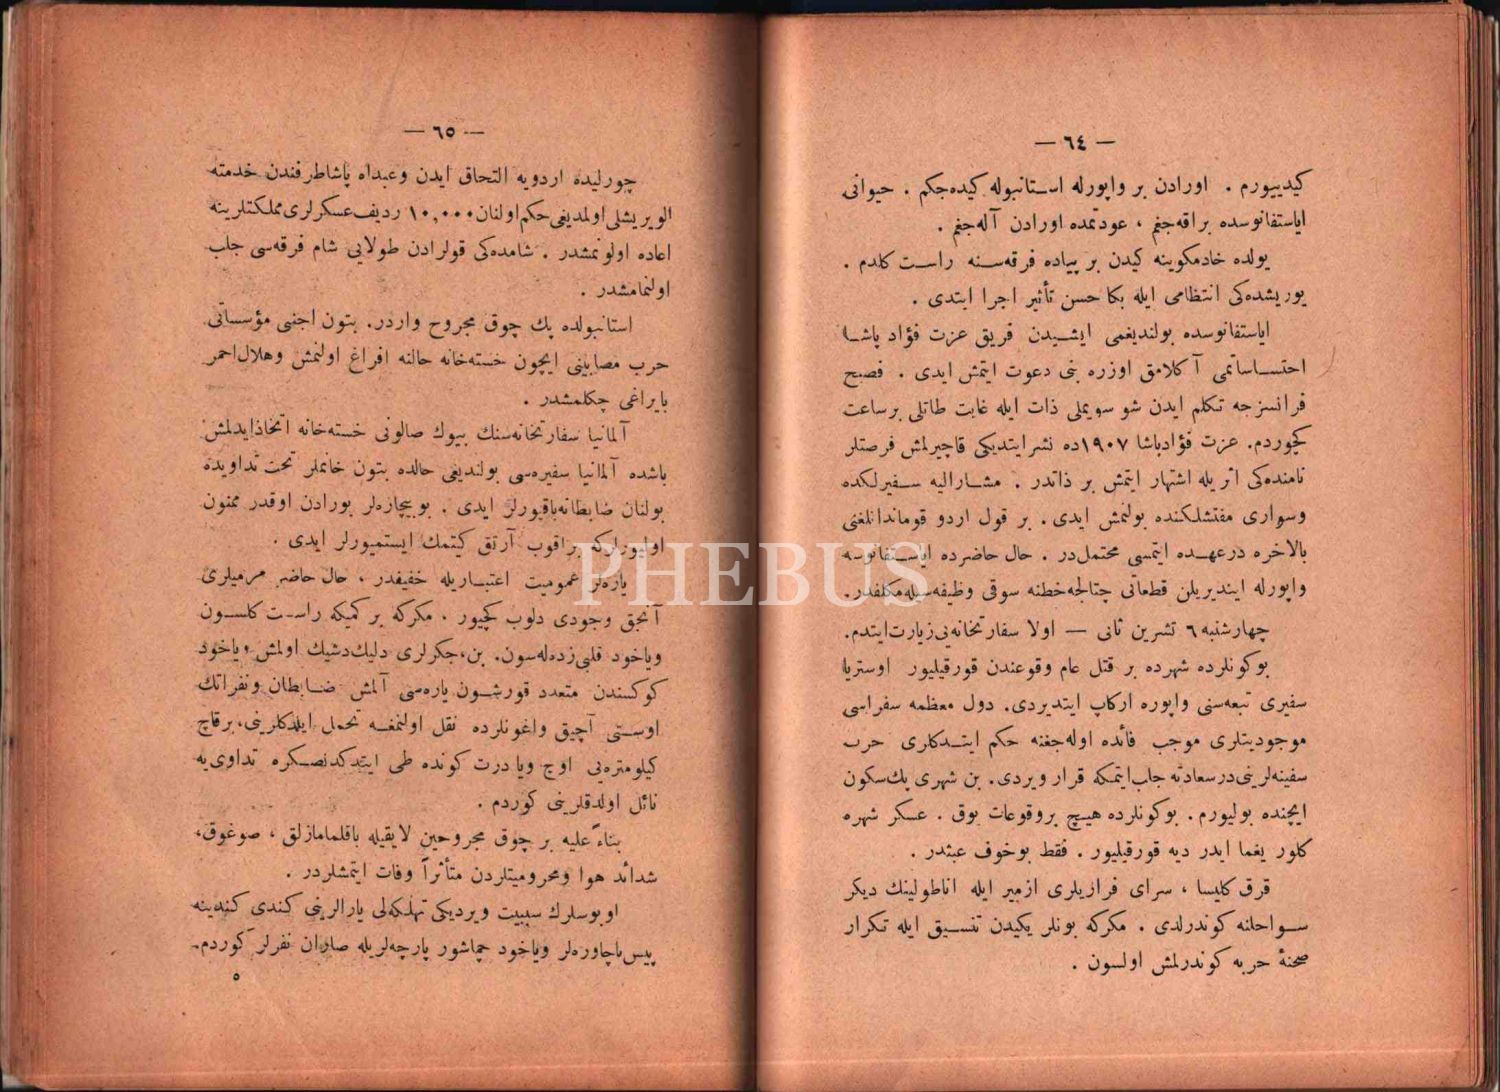 — ٦٤ —
كيدييورم . اورادن بر واپورله استانبوله كيده‌جكم . حيوانى
اياستفانوسده براقه‌جغم ، عودتمده اورادن آله‌جغم .
يولده خادمكوينه كيدن بر پياده فرقه‌سنه راست كلدم .
يوريشده‌كى انتظامى ايله بكا حسن تأثير اجرا ايتدى .
اياستفانوسده بولنديغمى ايشيدن فريق عزت فؤاد پاشا
احتساساتمى آكلامق اوزره بنى دعوت ايتمش ايدى . فصيح
فرانسزجه تكلم ايدن شو سويملى ذات ايله غايت طاتلى برساعت
كچوردم. عزت فؤادپاشا ١٩٠٧ده نشرايتديكى قاچيرلمش فرصتلر
نامنده‌كى اثريله اشتهار ايتمش بر ذاتدر . مشاراليه سفيرلكده
وسوارى مفتشلكنده بولنمش ايدى . بر قول اردو قوماندانلغنى
بالاخره درعهده ايتمسى محتملدر . حال حاضرده اياستفانوسه
واپورله اينديريلن قطعاتى چتالجه‌خطنه سوقى وظيفه‌سيله‌مكلفدر.
چهارشنبه ٦ تشرين ثانى — اولا سفارتخانه‌يى زيارت‌ايتدم.
بوكونلرده شهرده بر قتل عام وقوعندن قورقيليور اوستريا
سفيرى تبعه‌سنى واپوره اركاب ايتديردى. دول معظمه سفراسى
موجوديتلرى موجب فائده اوله‌جغنه حكم ايتدكارى حرب
سفينه‌لرينى‌درسعادته جلب‌ايتمكه قرار ويردى. بن شهرى پك‌سكون
ايچنده بوليورم. بوكونلرده هيچ بروقوعات يوق . عسكر شهره
كلور يغما ايدر ديه قورقيليور . فقط بوخوف عبثدر .
قرق كليسا ، سراى فراريلرى ازمير ايله اناطولينك ديكر
سواحلنه كوندرلدى . مكركه بونلر يكيدن تنسيق ايله تكرار
صحنۀ حربه كوندرلمش اولسون .
— ٦٥ —
چورليده اردويه التحاق ايدن وعبداه پاشاطرفندن خدمته
الويريشلى اولمديغى حكم‌اولنان ١٠,٠٠٠ رديف عسكرلرى مملكتلرينه
اعاده اولونمشدر . شامده‌كى قولرادن طولايى شام فرقه‌سى جلب
اولنمامشدر .
استانبولده پك چوق مجروح واردر. بتون اجنبى مؤسساتى
حرب مصابينى ايچون خسته‌خانه حالنه افراغ اولنمش وهلال‌احمر
بايراغى چكلمشدر .
آلمانيا سفارتخانه‌سنك بيوك صالونى خسته‌خانه اتخاذايدلمش
باشده آلمانيا سفيره‌سى بولنديغى حالده بتون خانملر تحت تداويده
بولنان ضابطانه‌باقيورلر ايدى . بوبيچاره‌لر بورادن اوقدر ممنون
اوليورلركه براقوب آرتق كيتمك ايستميورلر ايدى .
ياره‌لر عموميت اعتباريله خفيفدر ، حال حاضر مرميلرى
آنجق وجودى دلوب كچيور . مكركه بر كميكه راست كلسون
وياخود قلبى زده‌له‌سون. بن، جكرلرى دليك‌دشيك اولمش وياخود
كوكسندن متعدد قورشون ياره‌سى آلمش ضابطان ونفراتك
اوستى آچيق واغونلرده نقل اولنمغه تحمل ايلدكلرينى، برقاچ
كيلومتره‌يى اوچ ويادرت كونده طى ايتدكدنصكره تداوىيه
نائل اولدقلرينى كوردم .
بناءً عليه بر چوق مجروحين لايقيله باقلمامازلق ، صوغوق،
شدائد هوا ومحروميتلردن متأثراً وفات ايتمشلردر .
اوبوسلرك سببيت ويرديكى تهلكه‌لى يارالرينى كندى كندينه
پيس پاچاوره‌لر وياخود چماشور پارچه‌لريله صاران نفرلر كوردم.
٥
PHEBUS